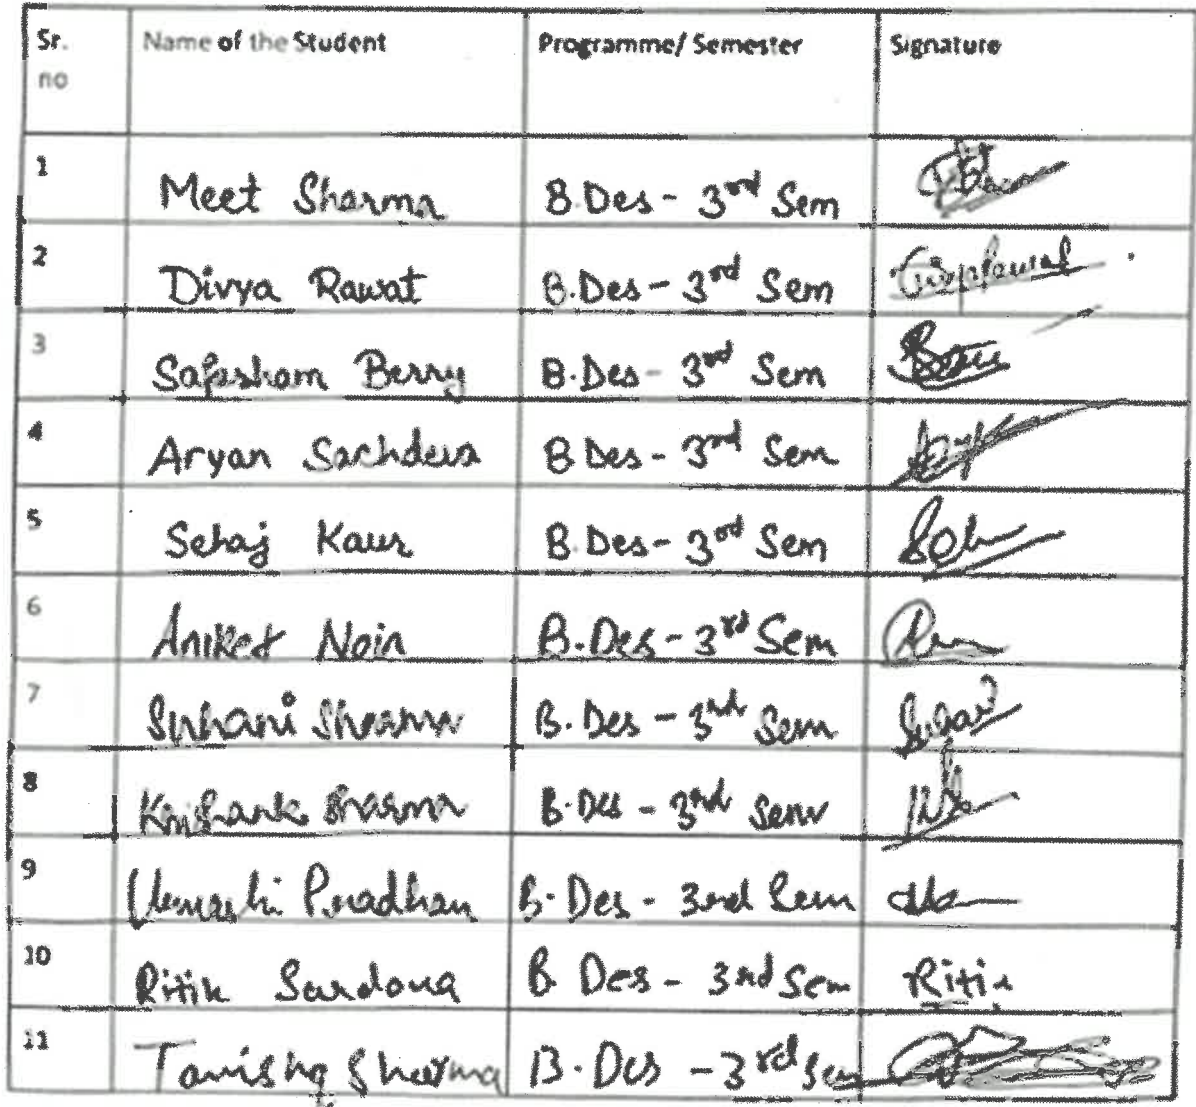 Sr. no Name of the Student Programme/ Semester Signature
1 Meet Sharma B.Des - 3rd Sem
2 Divya Rawat B.Des - 3rd Sem
3 Berry B.Des - 3rd Sem
4 Aryan Sachdeva B.Des - 3rd Sem
5 Sehaj Kaur B.Des - 3rd Sem
6 Aniket Nain B.Des - 3rd Sem
7 Suhani Sharma B. Des - 3rd Sem
8 Sharma B. Des - 3rd Sem
9 Pradhan B. Des - 3rd Sem
10 Ritik Sardana B Des - 3rd Sem Ritik
11 Tanishq Sharma B. Des - 3rd Sem